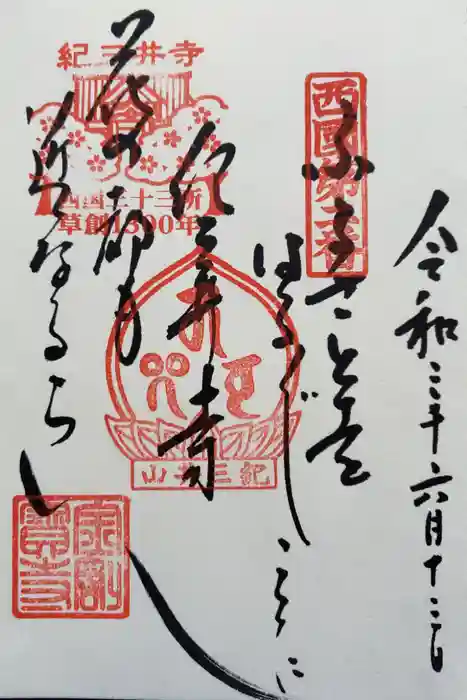 令和三年六月十三日
西國第二番
ふるさとを
はる〴〵こゝに
紀三井寺
花の都も
近くなるらん
紀三井寺
西国三十三所
草創1300年
紀三井山
金剛寶寺